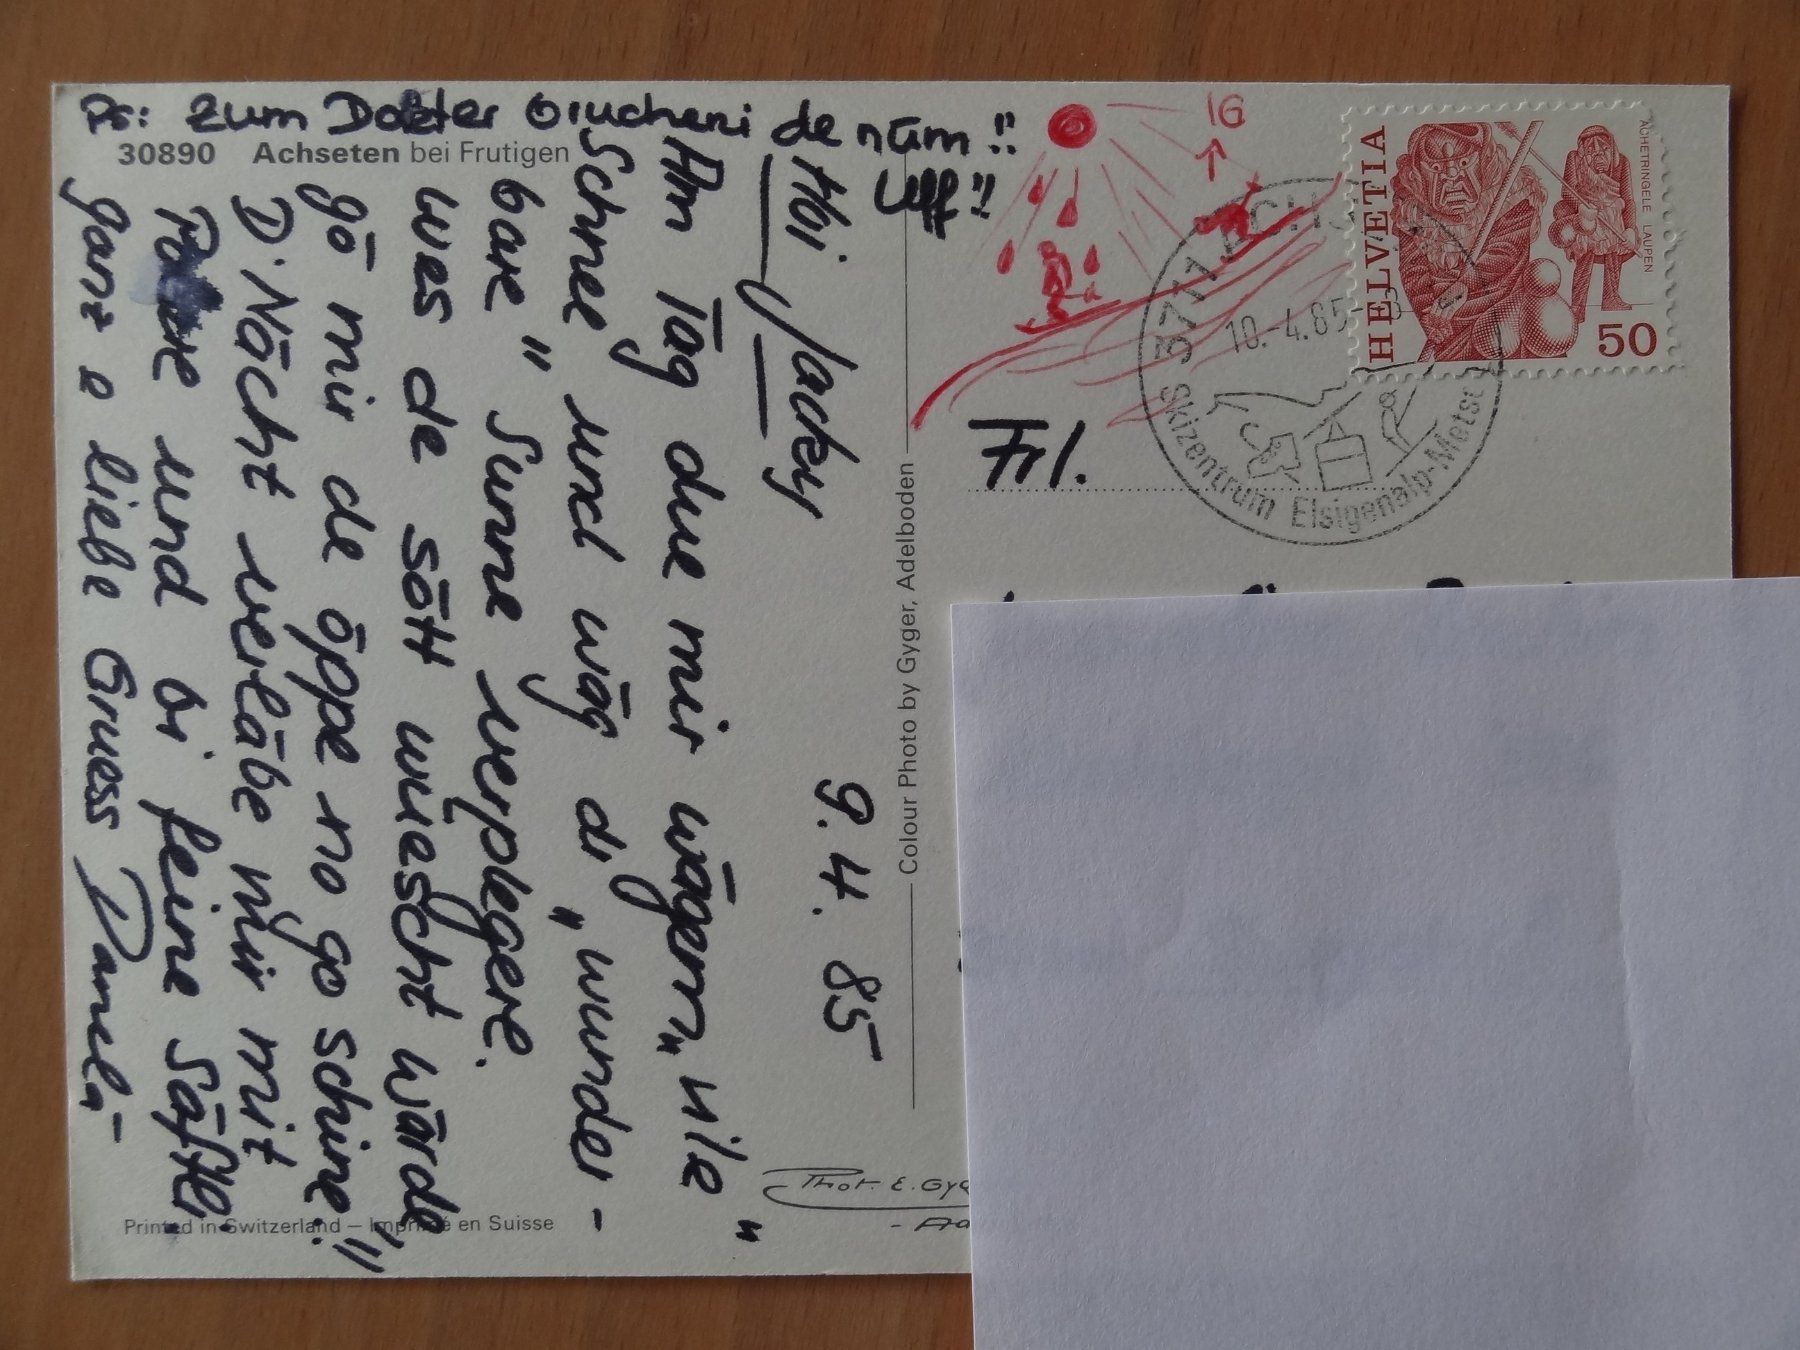 Ps: Zum Dokter brucheni de nüm!!
Uff!!
30890 Achseten bei Frutigen
9.4.85
Hoi Jacky
Am Tag due mir wägem "vile"
Schnee und wäg dr "wunder-
bare" Sunne verplegere.
Wes de sött wüescht wärde
gö mir de öppe no go schine!!
D'Nächt verläbe mir mit
Pose und bi feine Säftli.
Ganz e liebe Gruess Pamela
Printed in Switzerland – Imprimé en Suisse
Colour Photo by Gyger, Adelboden
Phot. E. Gyg
IG
Frl.
HELVETIA
ACHETRINGELE LAUPEN
50
3711 ACHS
10.-4.85-
Skizentrum Elsigenalp-Metsc